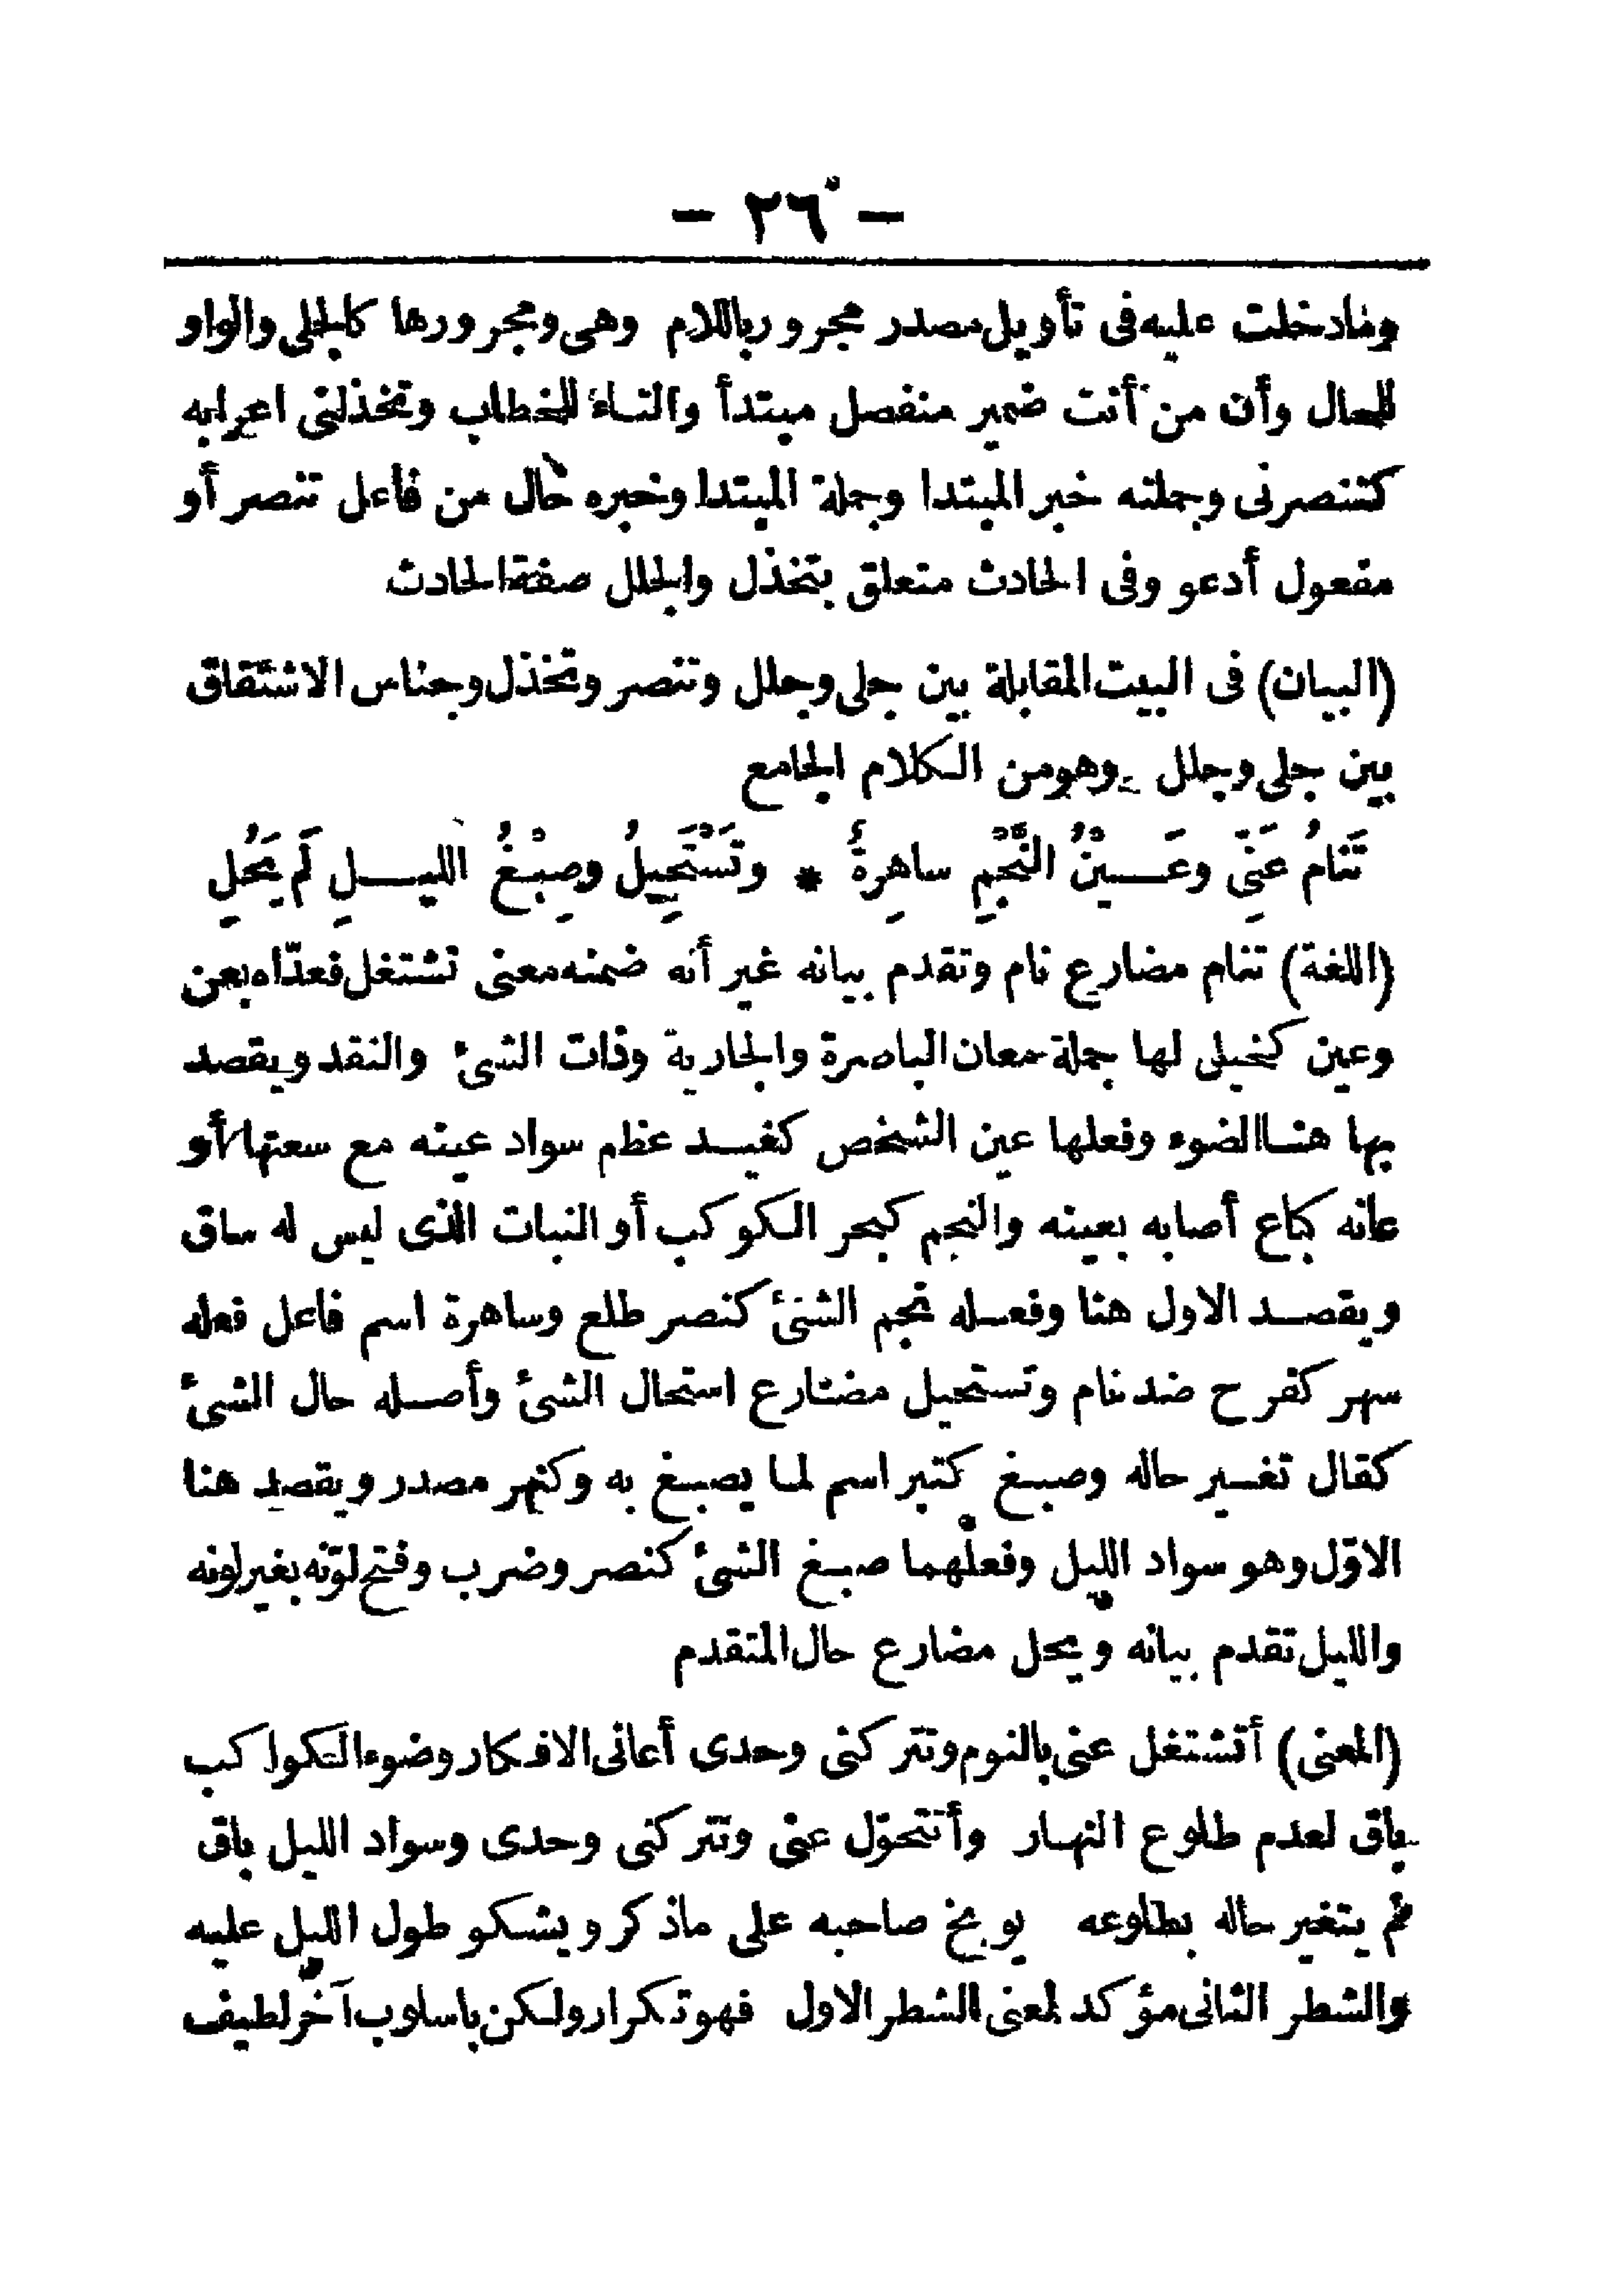 — ٢٦ —
ومادخلت عليه فى تأويل مصدر مجرور باللام وهى ومجرورها كالجلى والواو
للحال وأن من أنت ضمير منفصل مبتدأ والتاء للخطاب وتخذلنى اعرابه
كتنصرنى وجملته خبر المبتدا وجملة المبتدا وخبره حال من فاعل تنصر أو
مفعول أدعو وفى الحادث متعلق بتخذل والجلل صفة الحادث
(البيان) فى البيت المقابلة بين جلى وجلل وتنصر وتخذل وجناس الاشتقاق
بين جلى وجلل وهو من الكلام الجامع
تَنَامُ عَنِّى وعَــيْنُ النَّجْمِ ساهِرةٌ * وتَسْتَحِيلُ وصِبْغُ الليــلِ لَم يَحُلِ
(اللغة) تنام مضارع نام وتقدم بيانه غير أنه ضمنه معنى تشتغل فعدّاه بعن
وعين كخيلى لها جملة معان الباصرة والجارية وذات الشئ والنقد ويقصد
بها هنا الضوء وفعلها عين الشخص كغيد عظم سواد عينه مع سعتها أو
عانه كباع أصابه بعينه والنجم كبحر الكوكب أو النبات الذى ليس له ساق
ويقصد الاول هنا وفعله نجم الشئ كنصر طلع وساهرة اسم فاعل فعله
سهر كفرح ضد نام وتستحيل مضارع استحال الشئ وأصله حال الشئ
كقال تغير حاله وصبغ كتبر اسم لما يصبغ به وكنهر مصدر ويقصد هنا
الاوّل وهو سواد الليل وفعلهما صبغ الشئ كنصر وضرب وفتح لوّنه بغير لونه
والليل تقدم بيانه ويحل مضارع حال المتقدم
(المعنى) أتشتغل عنى بالنوم وتتركنى وحدى أعانى الافكار وضوء الكواكب
باق لعدم طلوع النهار وأتتحوّل عنى وتتركنى وحدى وسواد الليل باق
لم يتغير حاله بطلوعه يوبخ صاحبه على ماذكر ويشكو طول الليل عليه
والشطر الثانى مؤكد لمعنى الشطر الاول فهو تكرار ولكن باسلوب آخر لطيف